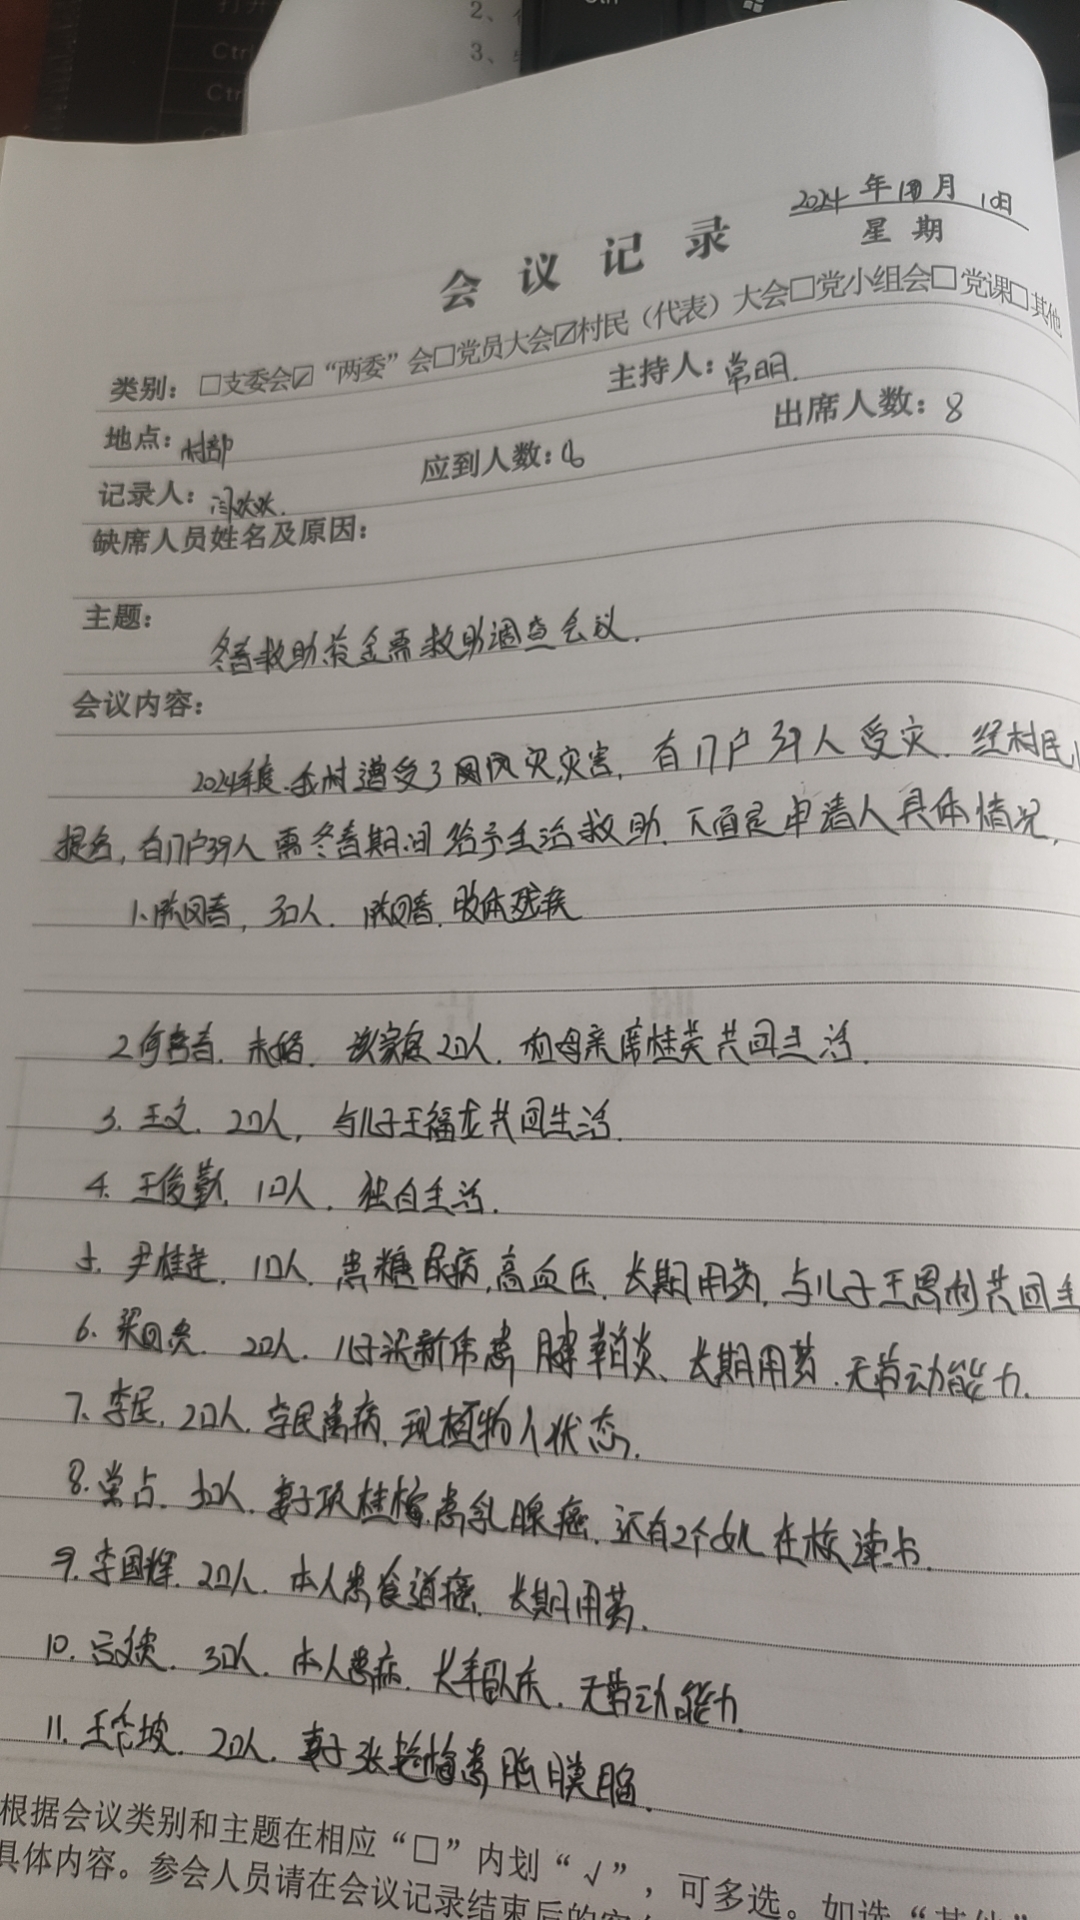 2、
3、
打开
Ctrl
Ctrl
2024 年 月 10日
星 期
会 议 记 录
类别：□支委会☑“两委”会□党员大会☑村民（代表）大会□党小组会□党课□其他
地点：村部 主持人：常明.
记录人：闫欢欢. 应到人数：8 出席人数：8
缺席人员姓名及原因：
主题：
冬春救助资金需救助调查会议.
会议内容：
2024年度.我村遭受了风灾灾害，有17户39人受灾.经村民
提名，有17户39人需冬春期间给予生活救助.下面是申请人具体情况，
1、 3口人. 肢体残疾
2.何 春. 未婚. 该家庭2口人. 和母亲席桂英共同生活.
3. 王文. 2口人， 与儿子王福龙共同生活.
4. 王俊勤. 1口人. 独自生活.
5. 尹桂莲. 1口人. 患糖尿病.高血压. 长期用药，与儿子王恩利共同生
6. 2口人. 儿子 新伟患腱鞘炎、长期用药.无劳动能力.
7、李民, 2口人. 李民患病. 现植物人状态.
8.常占. 口人. 妻子 桂梅患乳腺癌. 还有2个女儿在校读书.
9. 李国辉. 2口人. 本人患食道癌. 长期用药.
10. 3口人. 本人患病. 长年卧床. 无劳动能力.
11. 王 坡. 2口人. 妻子张艳梅患脑膜瘤.
根据会议类别和主题在相应“□”内划“√”，可多选。如选“其他”
具体内容。参会人员请在会议记录结束后的空